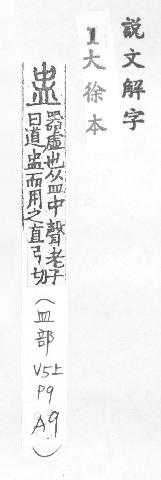 説文解字
1大徐本
盅 器虛也从皿中聲老子
曰道盅而用之直弓切
(皿部
V5上
P9
A9)